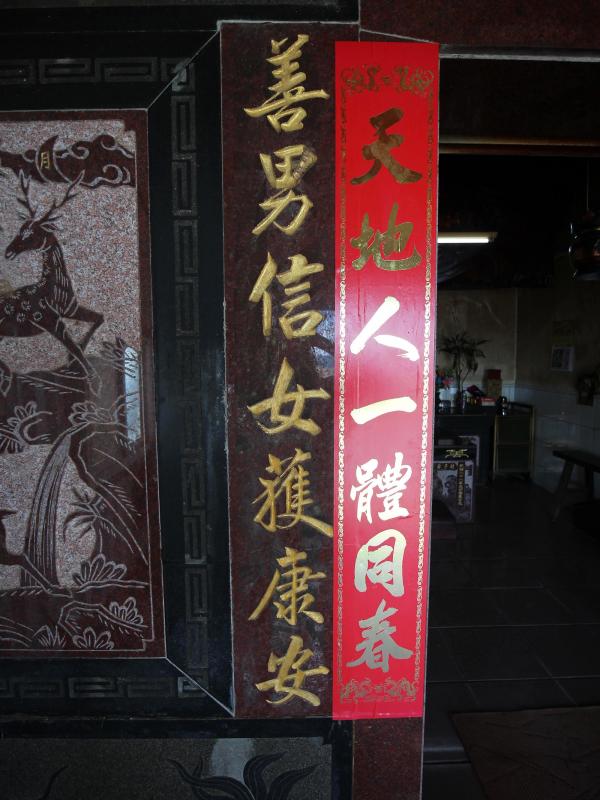 天地人一體同春
善男信女獲康安
月